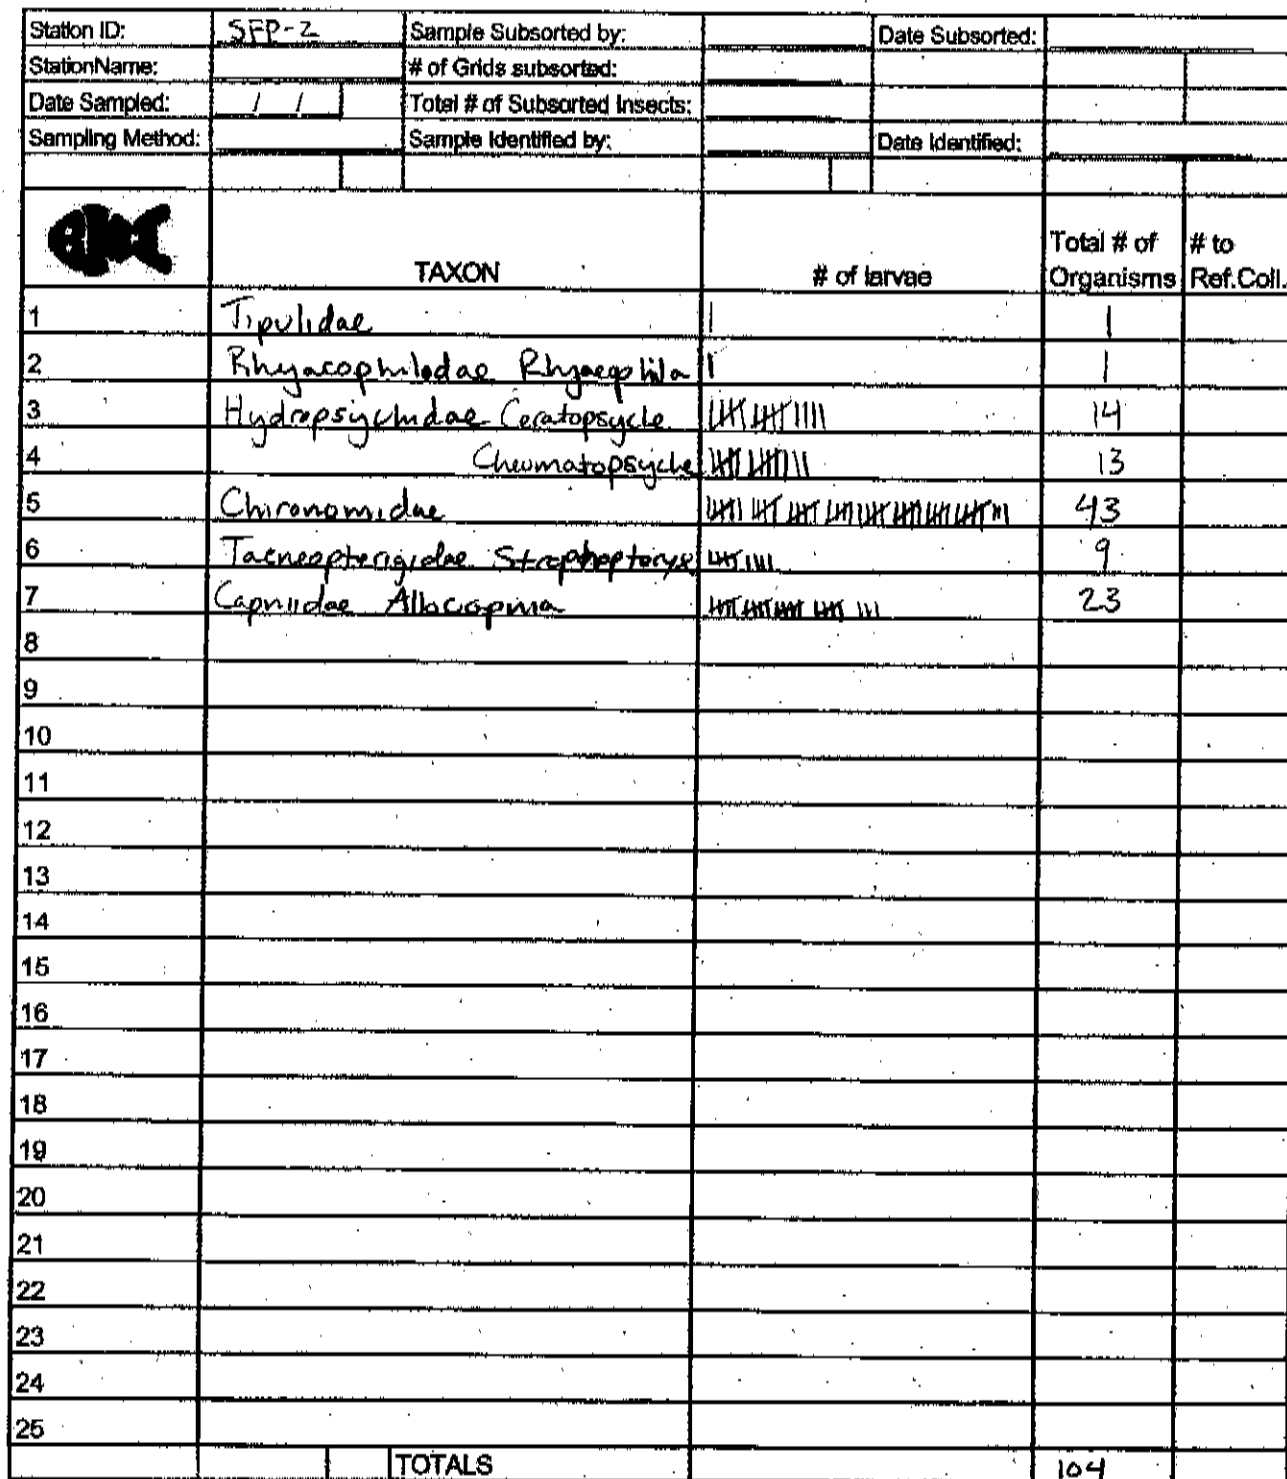 Station ID: SFP-2 Sample Subsorted by: Date Subsorted:
StationName: # of Grids subsorted:
Date Sampled: / / Total # of Subsorted Insects:
Sampling Method: Sample Identified by: Date Identified:
TAXON # of larvae Total # of Organisms # to Ref.Coll.
1 Tipulidae | 1
2 Rhyacophilodae Rhyacophila | 1
3 Hydropsychidae Ceratopsyche 14
4 Cheumatopsyche 13
5 Chironomidae 43
6 Taeneopterigidae Strophopteryx 9
7 Capniidae Allocapnia 23
8
9
10
11
12
13
14
15
16
17
18
19
20
21
22
23
24
25
TOTALS 104